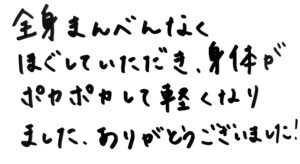 全身まんべんなく
ほぐしていただき、身体が
ポカポカして軽くなり
ました、ありがとうございました!